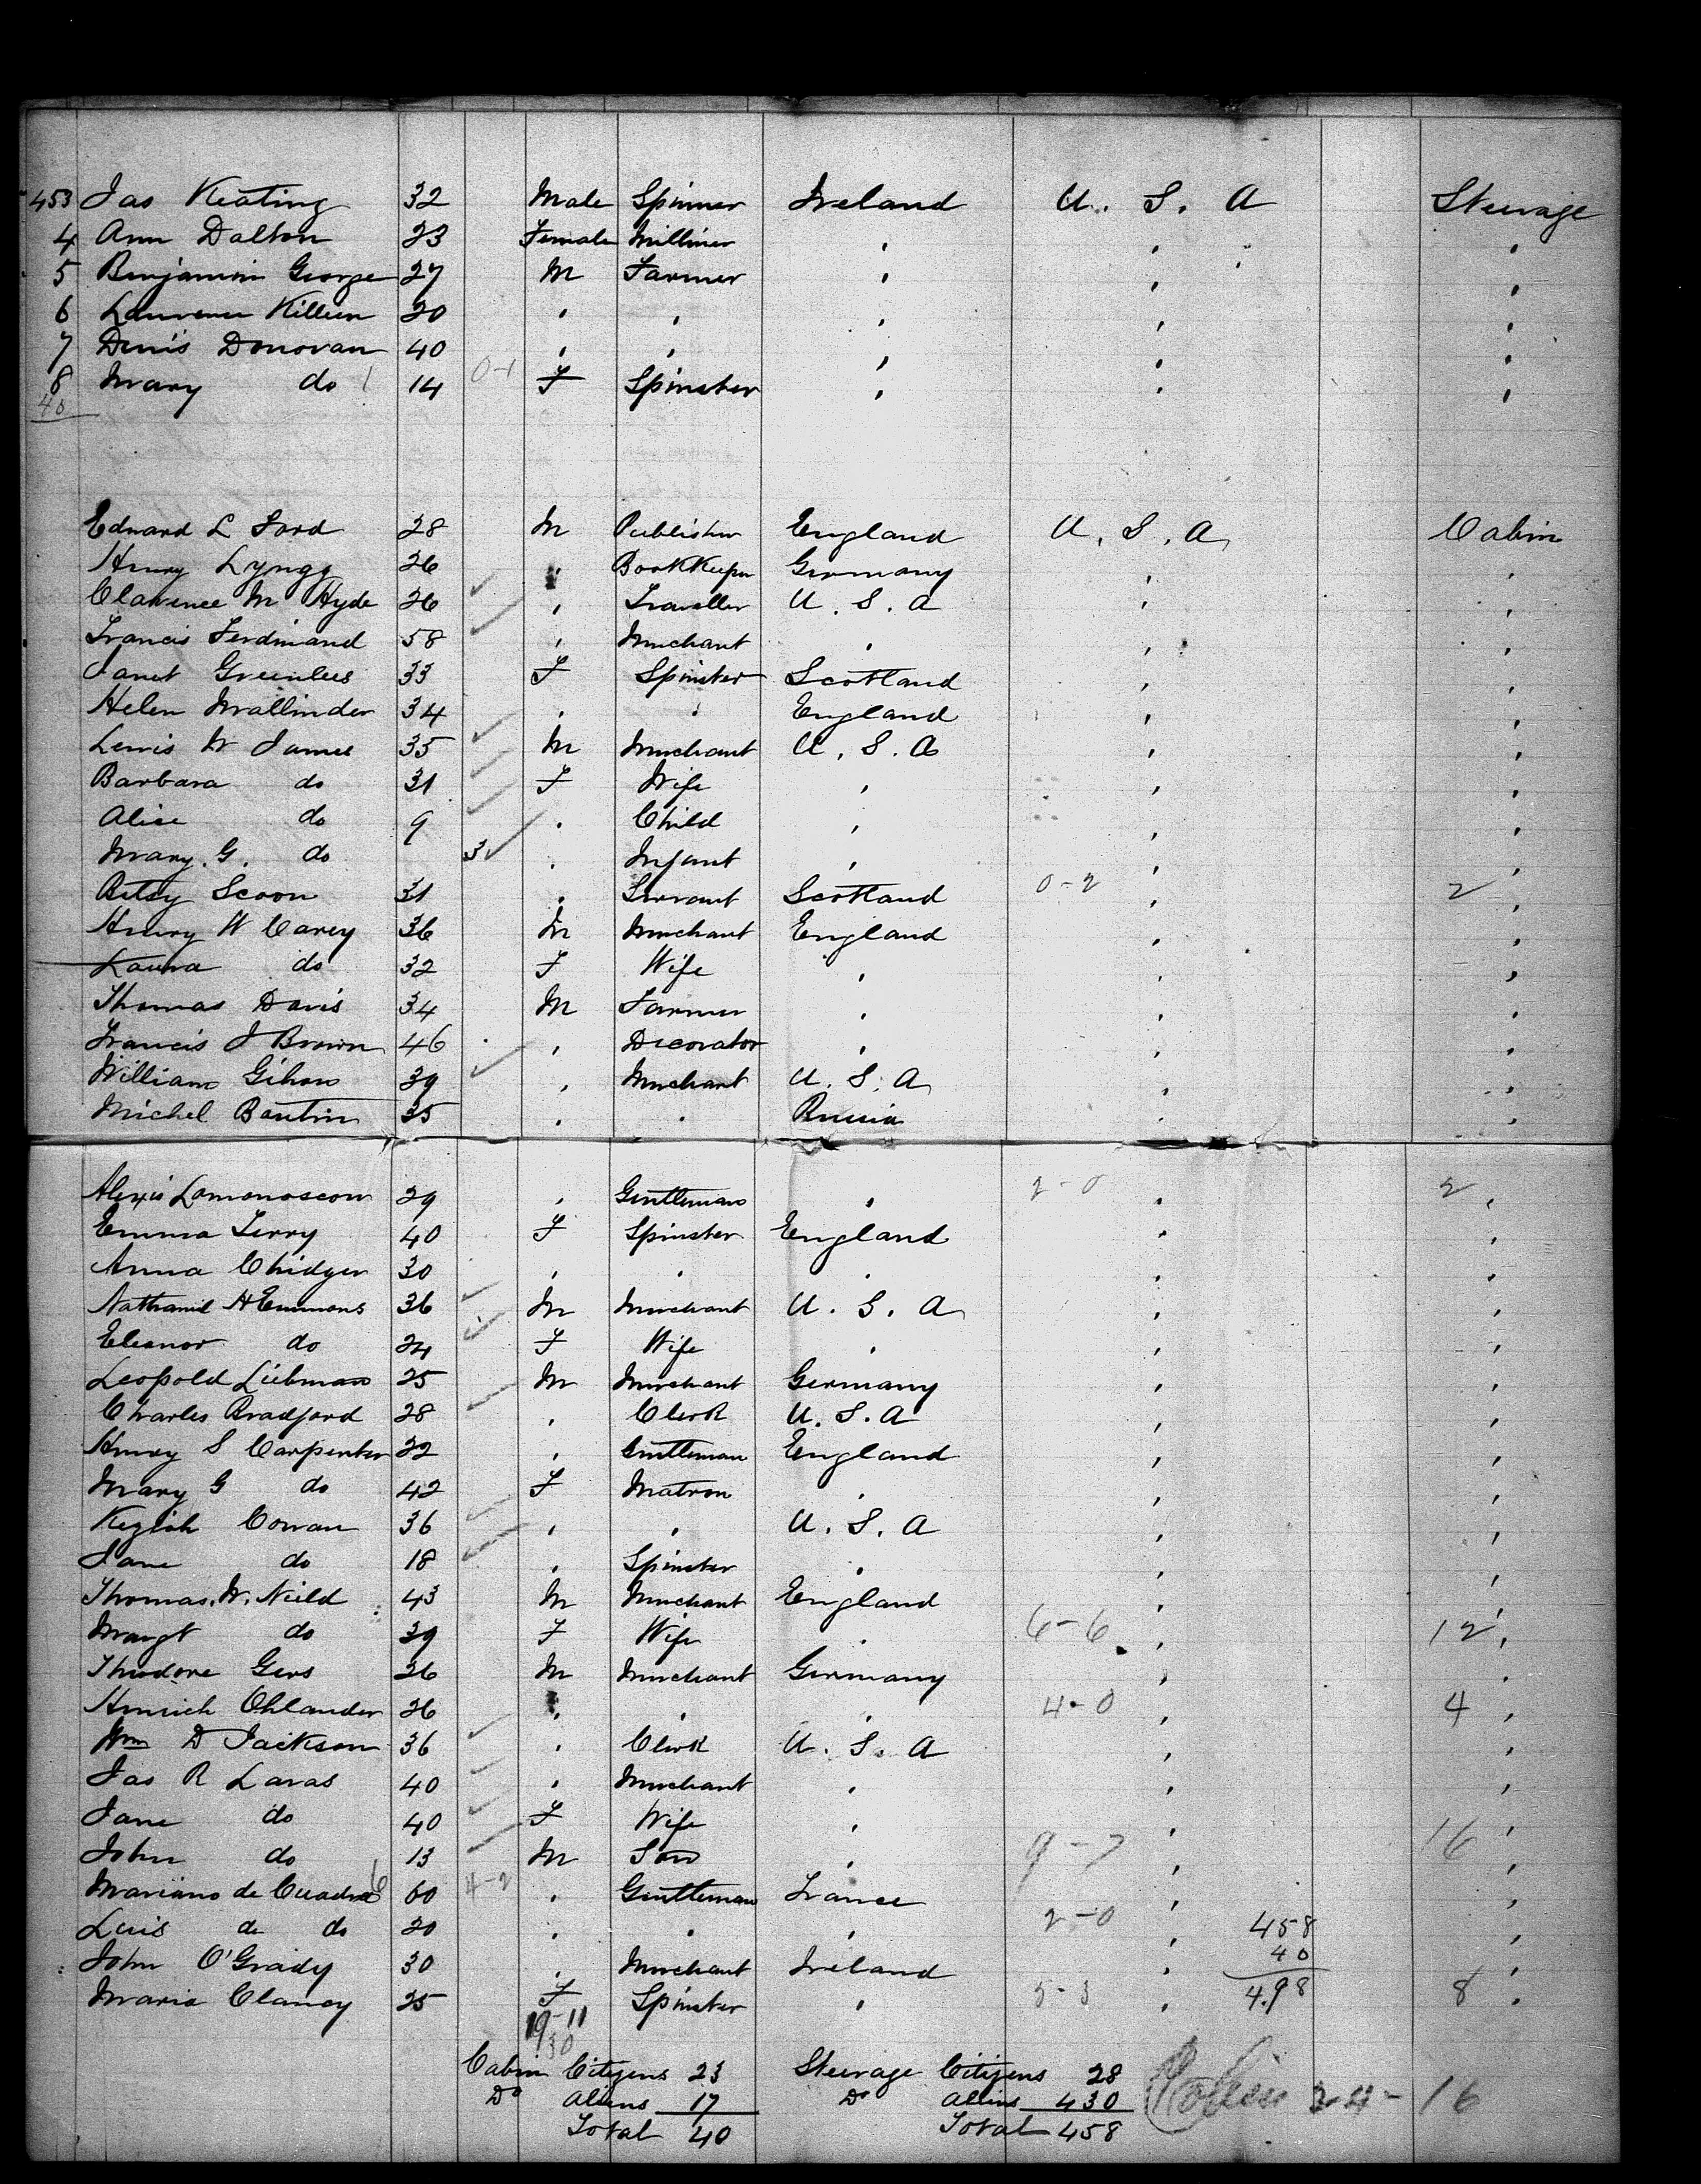 453 Jas Keating 32 Male Spinner Ireland U. S. A Steerage
4 Ann Dalton 23 Female Milliner " " "
5 Benjamin George 27 M Farmer " " "
6 Laurence Killeen 20 " " " " "
7 Denis Donovan 40 " " " " "
8 Mary do 1 14 0-1 F Spinster " " "
40
Edward L Ford 28 M Publisher England U. S. A Cabin
Henry Lyngg 26 " BookKeeper Germany " "
Clarence M Hyde 26 ✓ " Traveller U. S. A " "
Francis Ferdinand 58 ✓ " Merchant " " "
Janet Greenlees 33 F Spinster Scotland " "
Helen Mallinder 34 " " England " "
Lewis W James 35 ✓ M Merchant U. S. A " "
Barbara do 31 ✓ F Wife " " "
Alice do 9 ✓ " Child " " "
Mary. G. do 3 ✓ " Infant " " "
Betsy Scoon 31 " Servant Scotland 0-2 " 2 "
Henry W Carey 36 M Merchant England " "
Laura do 32 F Wife " " "
Thomas Davis 34 M Farmer " " "
Francis J Brown 46 " Decorator " " "
William Gihon 39 ✓ " Merchant U. S. A " "
Michel Boutin 35 " " Russia " "
Alexis Lomonoscow 29 " Gentleman " 2-0 " 2 "
Emma Terry 40 F Spinster England " "
Anna Chidger 30 " " " " "
Nathaniel H Emmons 36 ✓ M Merchant U. S. A " "
Eleanor do 24 ✓ F Wife " " "
Leopold Liebman 25 M Merchant Germany " "
Charles Bradford 28 ✓ " Clerk U. S. A " "
Henry S Carpenter 32 " Gentleman England " "
Mary G do 42 F Matron " " "
Keziah Cowan 36 ✓ " " U. S. A " "
Jane do 18 ✓ " Spinster " " "
Thomas. W. Nield 43 M Merchant England " "
Margt do 39 F Wife " 6-6 " 12 "
Theodore Gers 26 M Merchant Germany " "
Hinrich Ohlander 26 " " " 4-0 " 4 "
Wm D Jackson 36 ✓ " Clerk U. S. A " "
Jas R Lavas 40 ✓ " Merchant " " "
Jane do 40 ✓ F Wife " " "
John do 13 ✓ M Son " 9-7 " 16 "
Mariano de Cuadra 6 60 4-2 " Gentleman France " "
Luis de do 20 " " " 2-0 " 458 "
John O'Grady 30 " Merchant Ireland " 40 "
Maria Clancy 25 F Spinster " 5-3 " 498 8 "
19-11
30
Cabin Citizens 23 Steerage Citizens 28
Do Aliens 17 Do Aliens 430 24-16
Total 40 Total 458